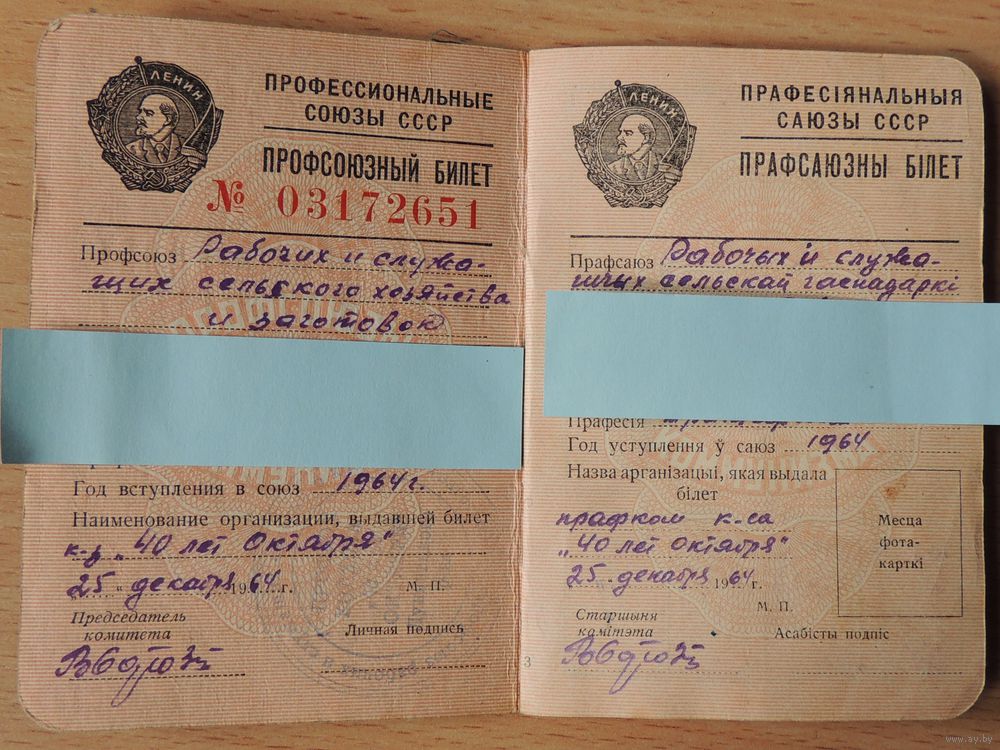 ЛЕНИН
ПРОФЕССИОНАЛЬНЫЕ
СОЮЗЫ СССР
ПРОФСОЮЗНЫЙ БИЛЕТ
№ 03172651
Профсоюз Рабочих и служа-
щих сельского хозяйства
и заготовок
Год вступления в союз 1964 г.
Наименование организации, выдавшей билет
к-з „40 лет Октября“
25 декабря 1964 г.
М. П.
Председатель
комитета
Личная подпись
ЛЕНИН
ПРАФЕСІЯНАЛЬНЫЯ
САЮЗЫ СССР
ПРАФСАЮЗНЫ БІЛЕТ
Прафсаюз Рабочых і служа-
шчых сельскай гаспадаркі
Прафесія
Год уступлення ў саюз 1964
Назва арганізацыі, якая выдала
білет
прафком к-са
„40 лет Октября“
25 декабря 1964 г.
Месца
фота-
карткі
М. П.
Старшыня
камітэта
Асабісты подпіс
3
www.ay.by